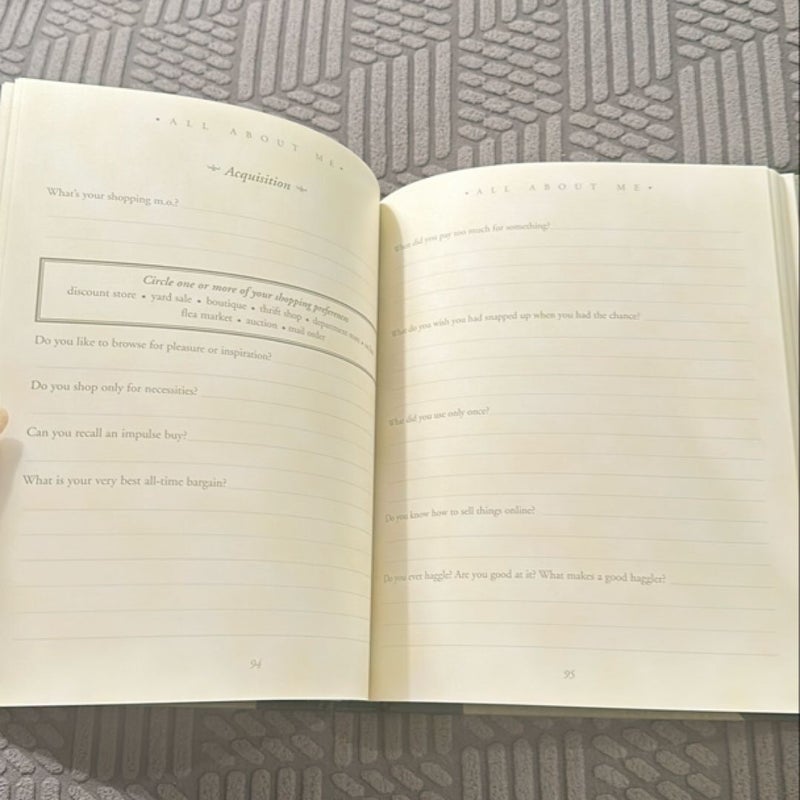 • ALL ABOUT ME •
Acquisition
What's your shopping m.o.?
Circle one or more of your shopping preferences
discount store • yard sale • boutique • thrift shop • department store •
flea market • auction • mail order
Do you like to browse for pleasure or inspiration?
Do you shop only for necessities?
Can you recall an impulse buy?
What is your very best all-time bargain?
94
• ALL ABOUT ME •
What did you pay too much for something?
What do you wish you had snapped up when you had the chance?
What did you use only once?
Do you know how to sell things online?
Do you ever haggle? Are you good at it? What makes a good haggler?
95